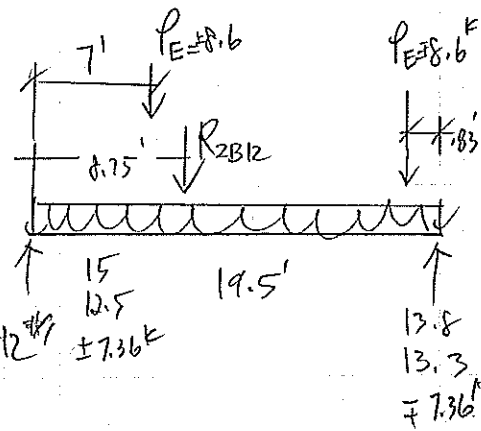 7'
P_E=±8.6
P_E=∓8.6ᴷ
.83'
8.75'
R_2B12
15
12.5
±7.36ᴷ
19.5'
13.8
13.3
∓7.36ᴷ